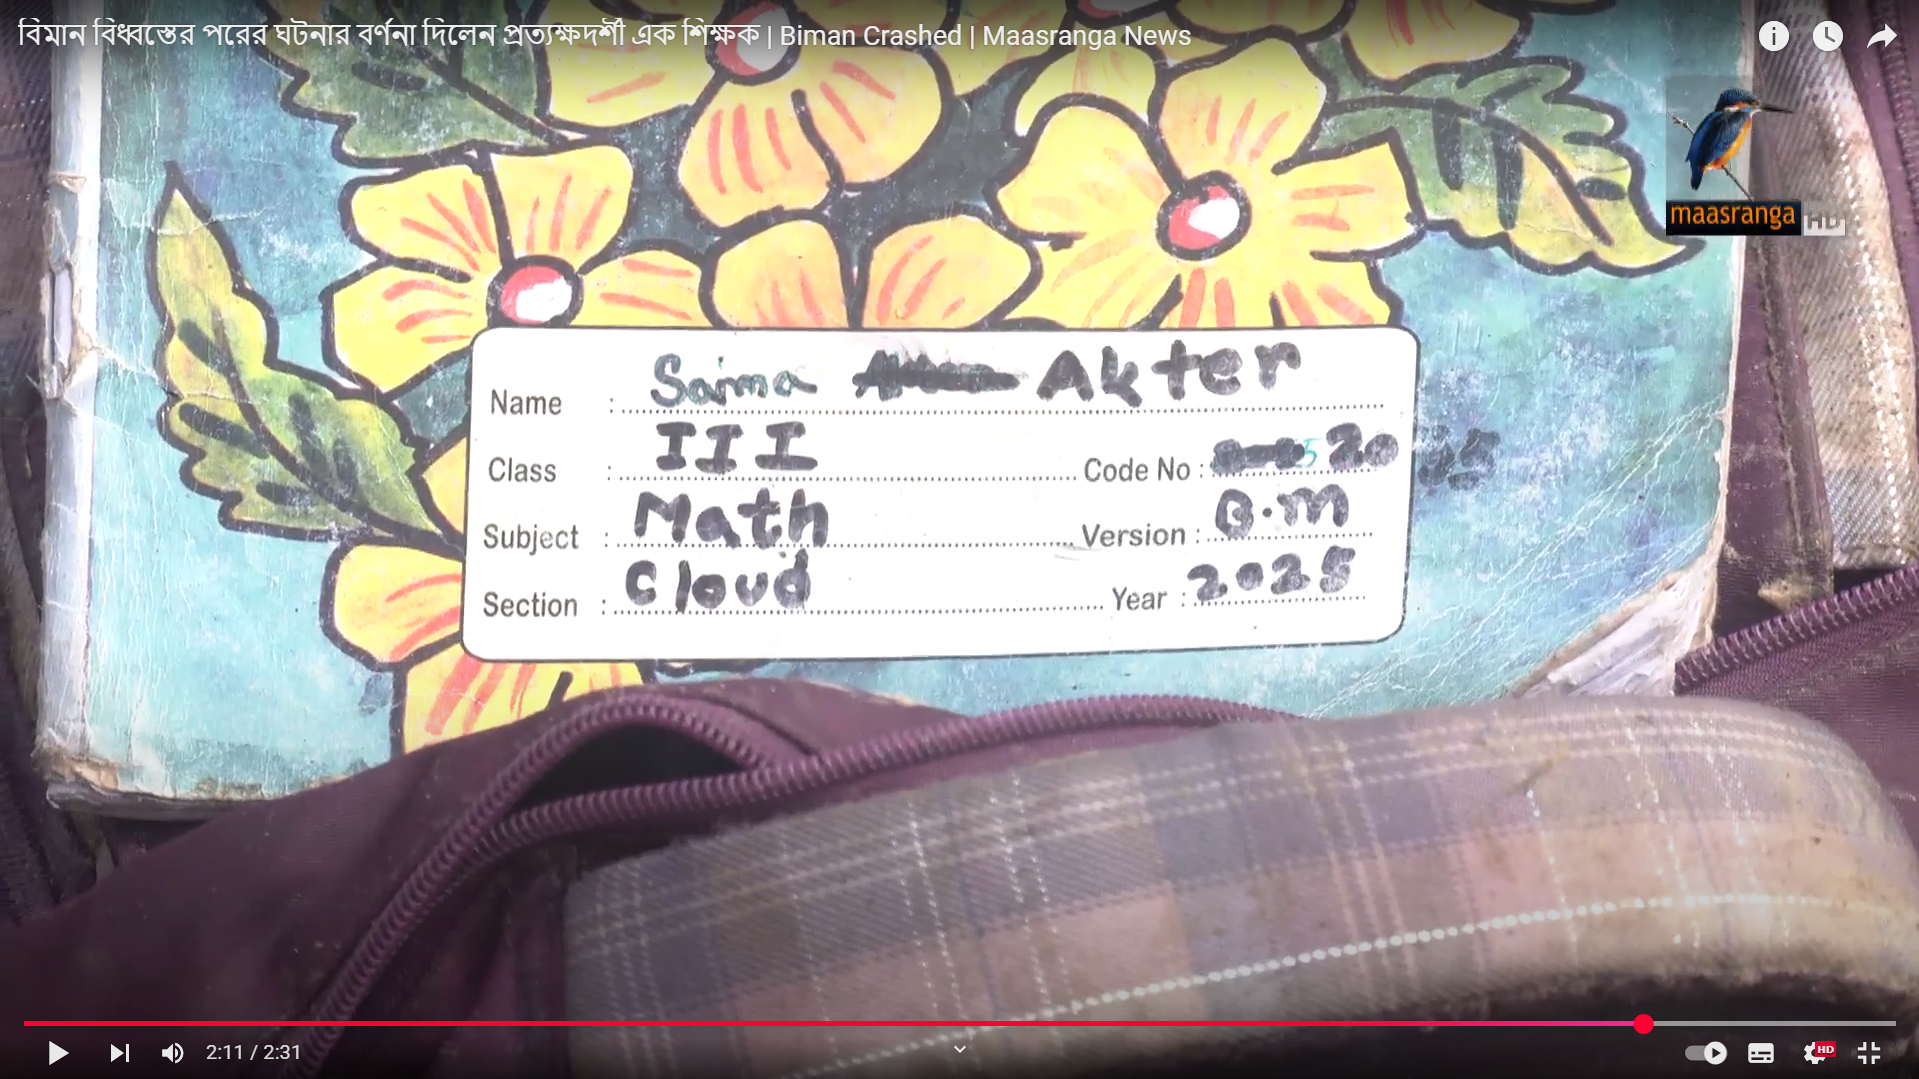 বিমান বিধ্বস্তের পরের ঘটনার বর্ণনা দিলেন প্রত্যক্ষদর্শী এক শিক্ষক | Biman Crashed | Maasranga News
maasranga HD
Name : Saima Akter
Class : III Code No : 20
Subject : Math Version : B.M
Section : Cloud Year : 2025
2:11 / 2:31
HD